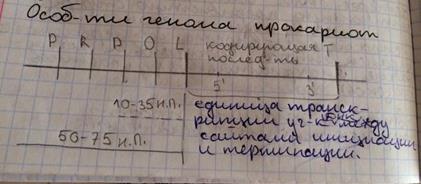 Особ-ти генома прокариот
P R P O L кодирующая T
послед-ть
5' 3'
10-35 н.п.
50-75 н.п.
единица транск-
рипции
между
сайтами инициации
и терминации.